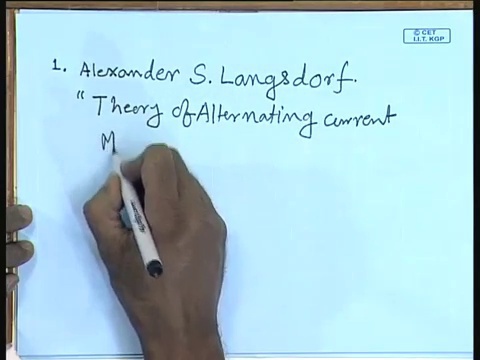 © CET
I.I.T. KGP
1. Alexander S. Langsdorf.
"Theory of Alternating current
M